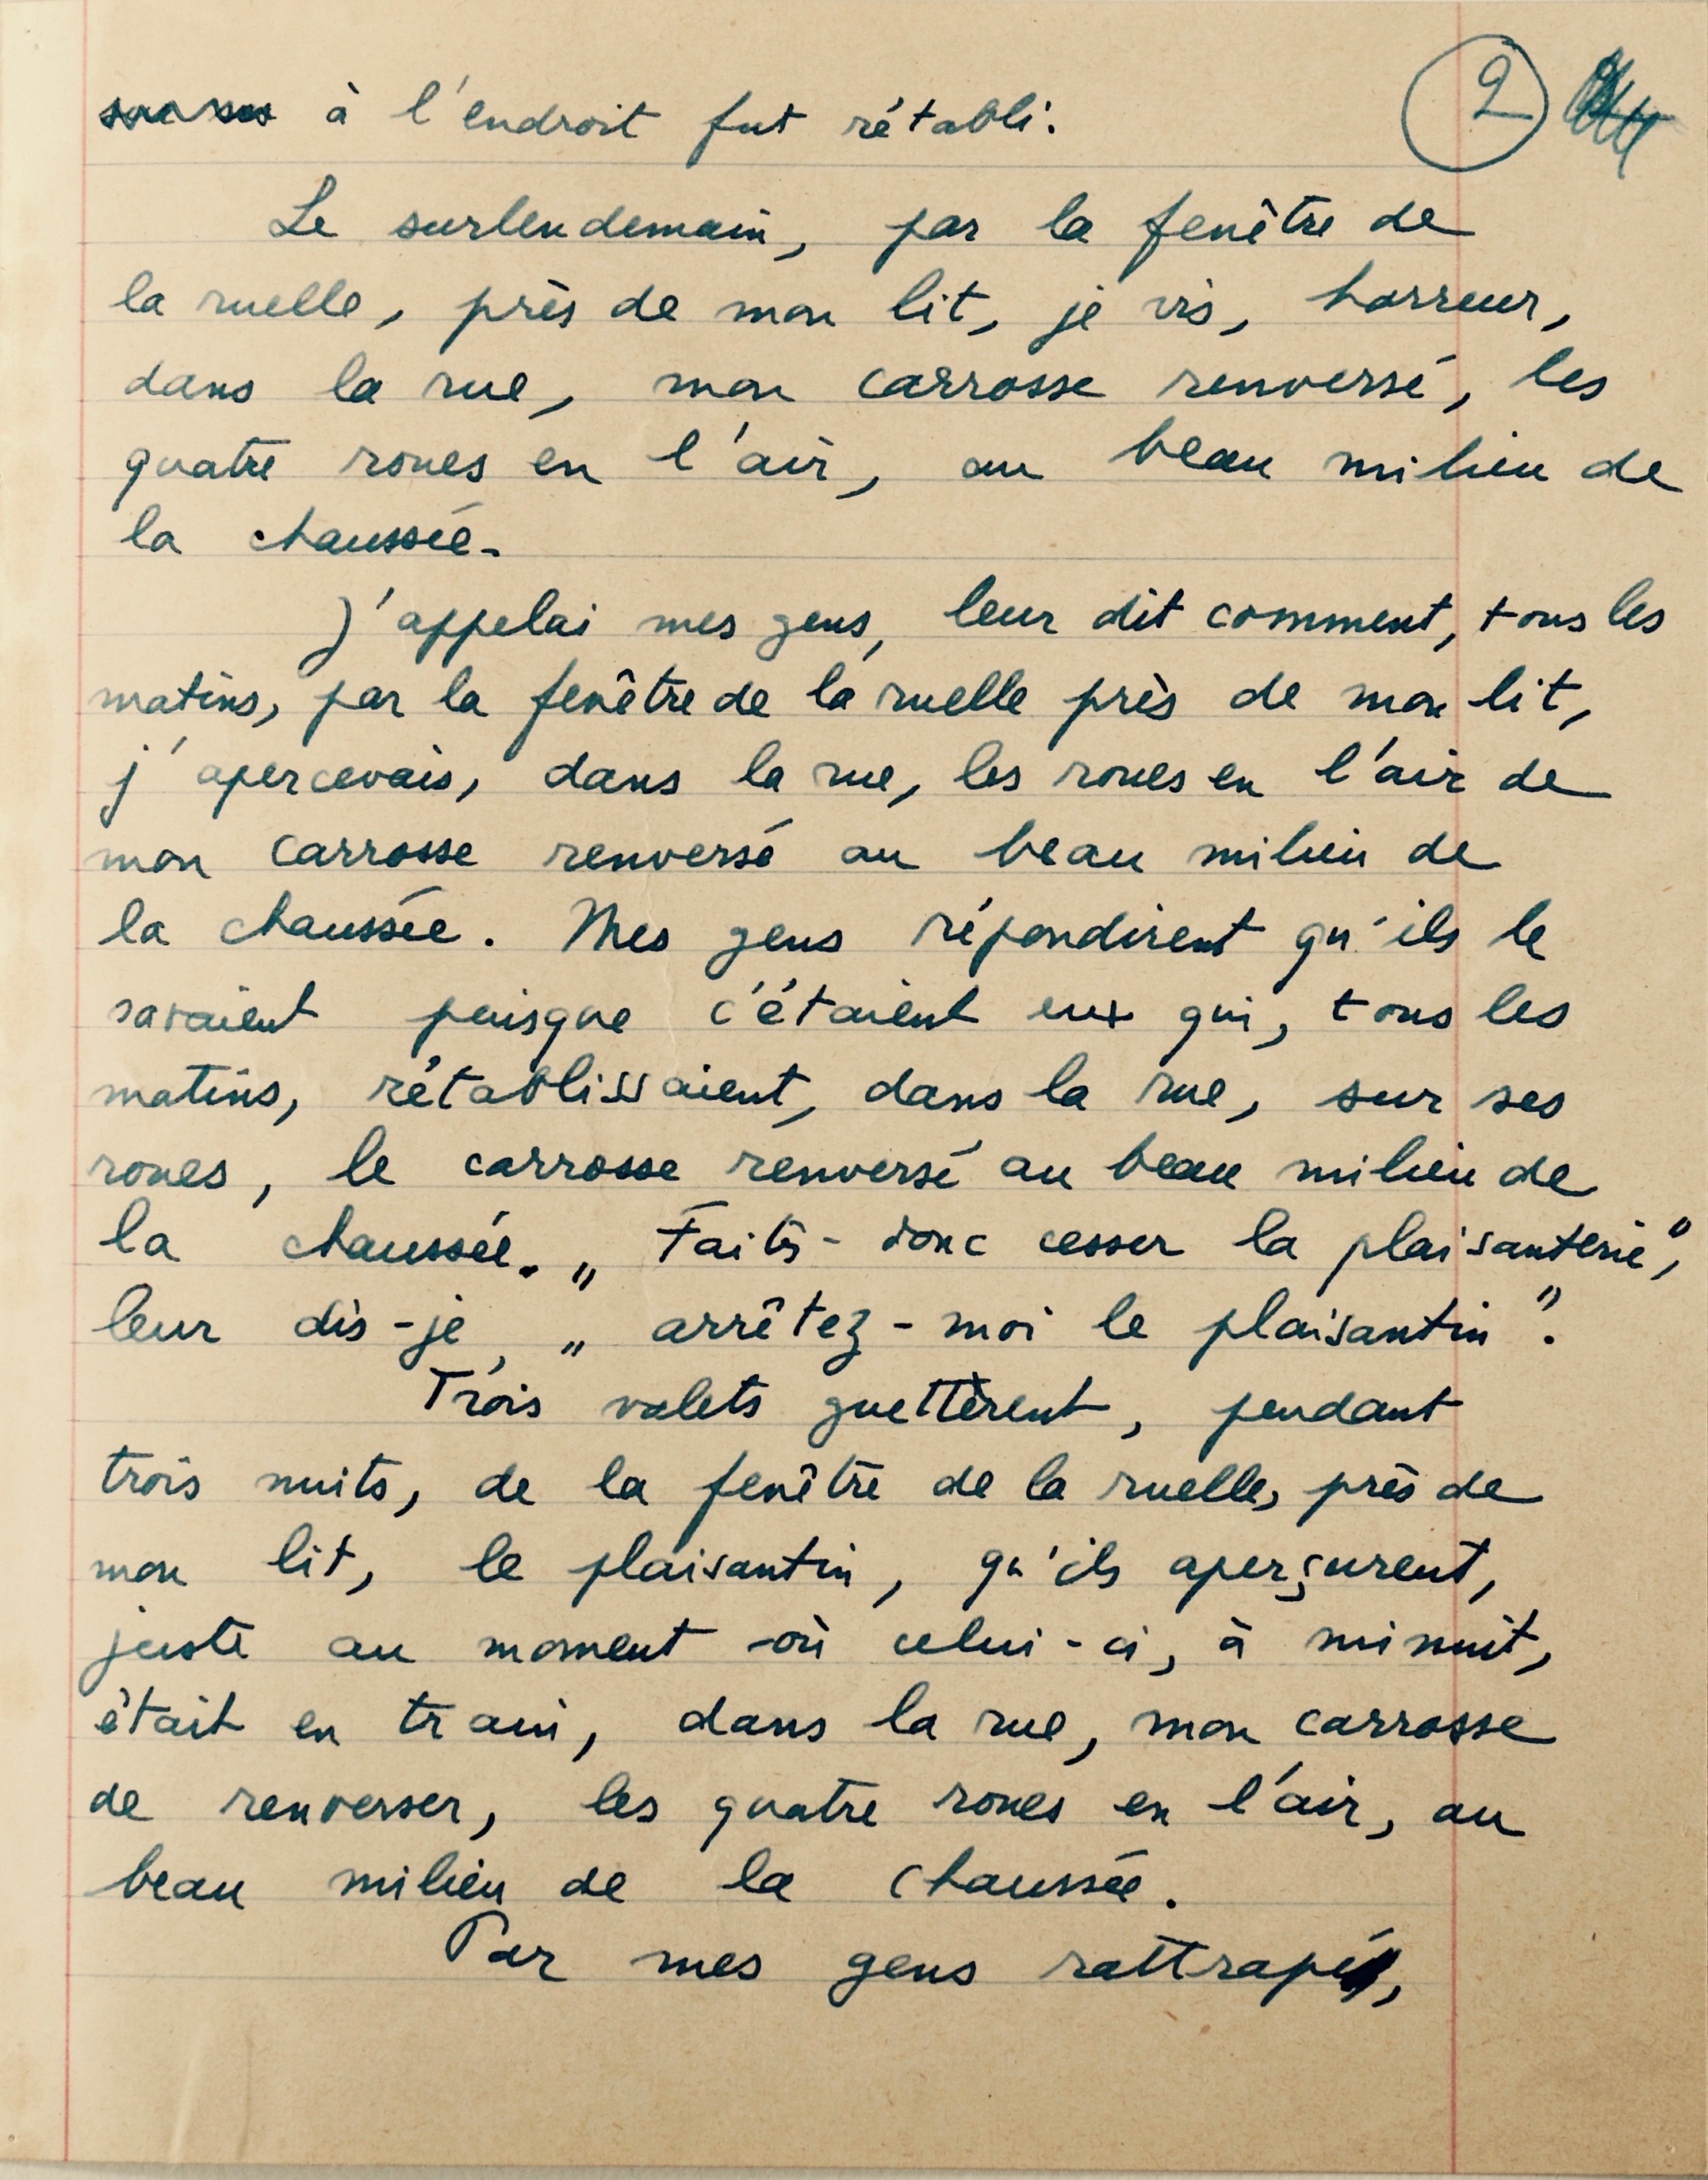 à l'endroit fut rétabli.
2
Le surlendemain, par la fenêtre de
la ruelle, près de mon lit, je vis, horreur,
dans la rue, mon carrosse renversé, les
quatre roues en l'air, au beau milieu de
la chaussée.
J'appelai mes gens, leur dit comment, tous les
matins, par la fenêtre de la ruelle près de mon lit,
j'apercevais, dans la rue, les roues en l'air de
mon carrosse renversé au beau milieu de
la chaussée. Mes gens répondirent qu'ils le
savaient puisque c'étaient eux qui, tous les
matins, rétablissaient, dans la rue, sur ses
roues, le carrosse renversé au beau milieu de
la chaussée. „ Faites-donc cesser la plaisanterie",
leur dis-je, „ arrêtez-moi le plaisantin ".
Trois valets guettèrent, pendant
trois nuits, de la fenêtre de la ruelle, près de
mon lit, le plaisantin, qu'ils aperçurent,
juste au moment où celui-ci, à minuit,
était en train, dans la rue, mon carrosse
de renverser, les quatre roues en l'air, au
beau milieu de la chaussée.
Par mes gens rattrapé,